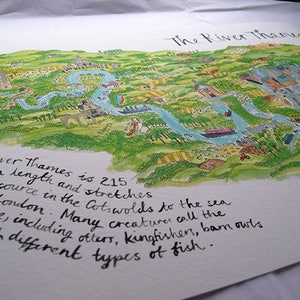 The River Thames
River Thames is 215
length and stretches
source in the Cotswolds to the sea
London. Many creatures call the
including otters, kingfishers, barn owls
different types of fish.